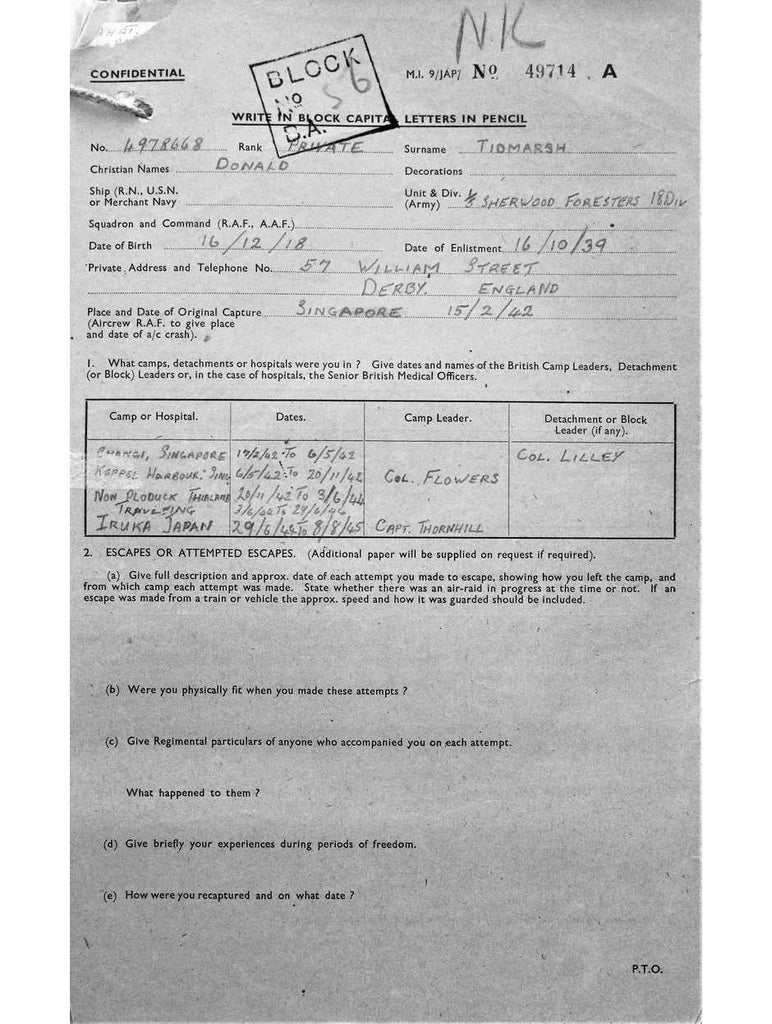 N.K
CONFIDENTIAL
BLOCK
No 56
D.A.
M.I. 9/JAP/ No 49714 A
WRITE IN BLOCK CAPITAL LETTERS IN PENCIL
No. 4978668 Rank PRIVATE Surname TIDMARSH
Christian Names DONALD Decorations
Ship (R.N., U.S.N. or Merchant Navy
Unit & Div. (Army) 1/5 SHERWOOD FORESTERS 18 DIV
Squadron and Command (R.A.F., A.A.F.)
Date of Birth 16/12/18 Date of Enlistment 16/10/39
Private Address and Telephone No. 57 WILLIAM STREET
DERBY. ENGLAND
Place and Date of Original Capture SINGAPORE 15/2/42
(Aircrew R.A.F. to give place
and date of a/c crash).
1. What camps, detachments or hospitals were you in ? Give dates and names of the British Camp Leaders, Detachment
(or Block) Leaders or, in the case of hospitals, the Senior British Medical Officers.
Camp or Hospital. Dates. Camp Leader. Detachment or Block Leader (if any).
CHANGI, SINGAPORE 17/2/42 TO 6/5/42 COL. LILLEY
KEPPEL HARBOUR. SING 6/5/42 TO 20/11/42 COL. FLOWERS
NON PLODUCK THIALAND 20/11/42 TO 3/6/44
TRAVELING 3/6/44 TO 29/6/44
IRUKA JAPAN 29/6/44 TO 8/8/45 CAPT. THORNHILL
2. ESCAPES OR ATTEMPTED ESCAPES. (Additional paper will be supplied on request if required).
(a) Give full description and approx. date of each attempt you made to escape, showing how you left the camp, and
from which camp each attempt was made. State whether there was an air-raid in progress at the time or not. If an
escape was made from a train or vehicle the approx. speed and how it was guarded should be included.
(b) Were you physically fit when you made these attempts ?
(c) Give Regimental particulars of anyone who accompanied you on each attempt.
What happened to them ?
(d) Give briefly your experiences during periods of freedom.
(e) How were you recaptured and on what date ?
P.T.O.